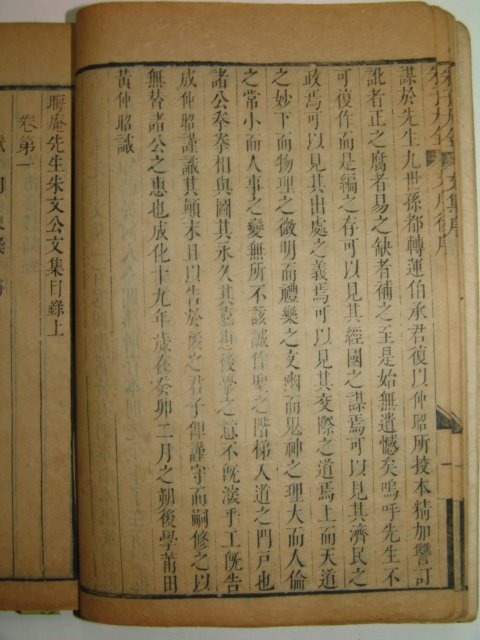 謀於先生九世孫都轉運伯承君復以仲昭所技本精加讐訂
訛者正之腐者易之缺者補之至是始無遺憾矣嗚呼先生不
可復作而是編之存可以見其經國之謀焉可以見其濟民之
政焉可以見其出處之義焉可以見其交際之道焉上而天道
之妙下而物理之微明而禮樂之文幽而鬼神之理大而人倫
之常小而人事之變無所不該誠作聖之階梯人道之門戸也
諸公拳拳相與圖其永久其嘉惠後學之意不旣淡乎工旣告
成仲昭謹識其顚末且以告於後之君子俾謹守而嗣修之以
無替諸公之惠也成化十九年歲在癸卯二月之朔後學莆田
黃仲昭識
晦庵先生朱文公文集目錄上
卷第一